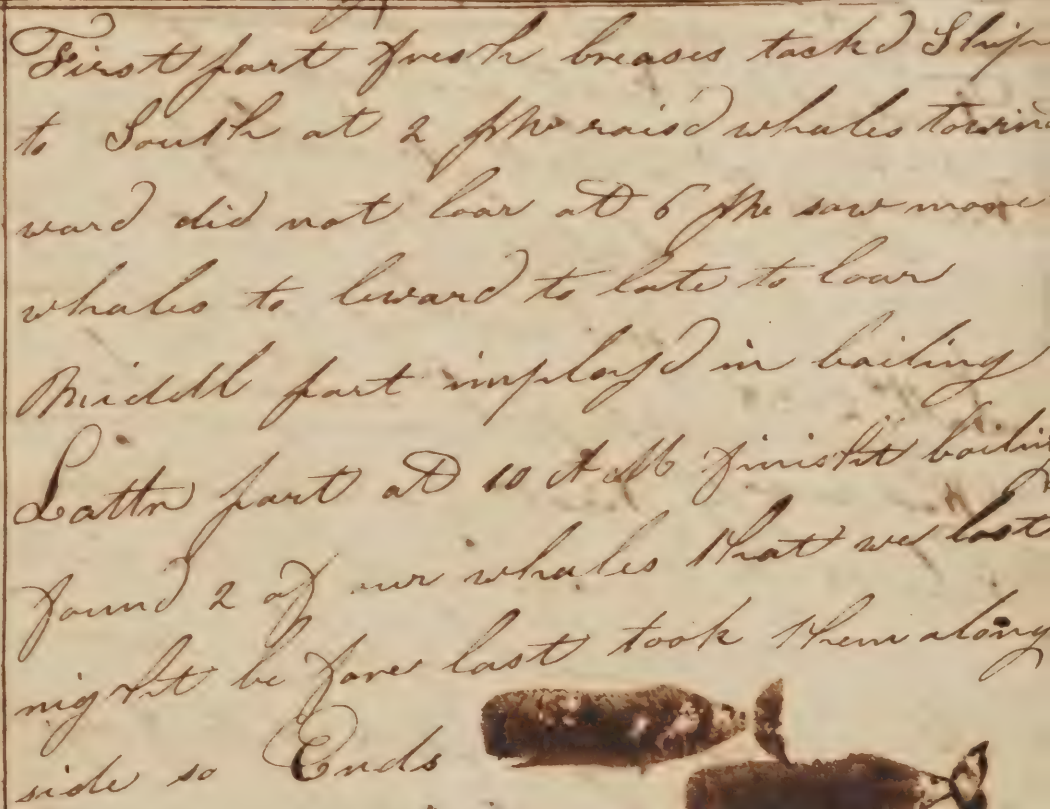 First part fresh breases tackd Ship
to South at 2 pm raisd whales towind
ward did not loar at 6 pm saw more
whales to leward to late to loar
Middl part imployd in boiling
Lattr part at 10 A M finisht boiling
found 2 of our whales that we lost
night be fore last took them along
side so Ends